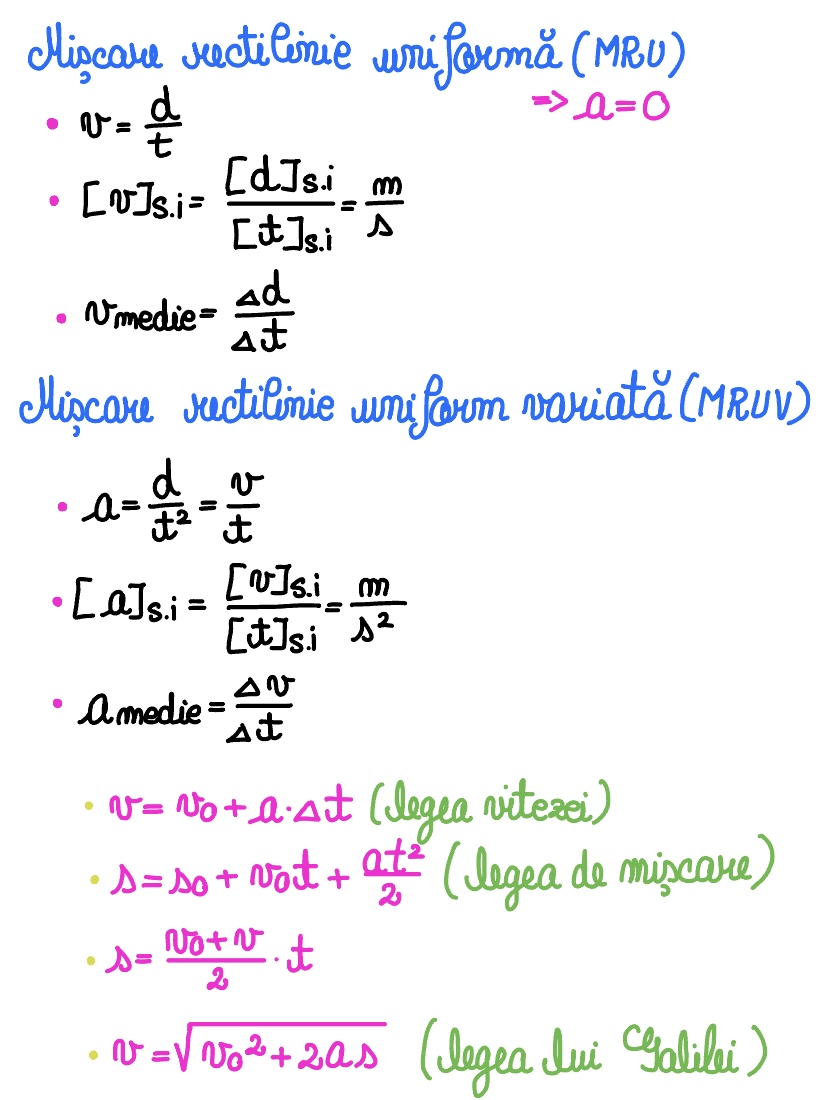 Mișcare rectilinie uniformă (MRU)
=> a = 0
• v = d/t
• [v]s.i = [d]s.i/[t]s.i = m/s
• vmedie = Δd/Δt
Mișcare rectilinie uniform variată (MRUV)
• a = d/t² = v/t
• [a]s.i = [v]s.i/[t]s.i = m/s²
• amedie = Δv/Δt
• v = v₀ + a · Δt (legea vitezei)
• s = s₀ + v₀t + at²/2 (legea de mișcare)
• s = v₀ + v/2 · t
• v = √v₀² + 2as (legea lui Galilei)